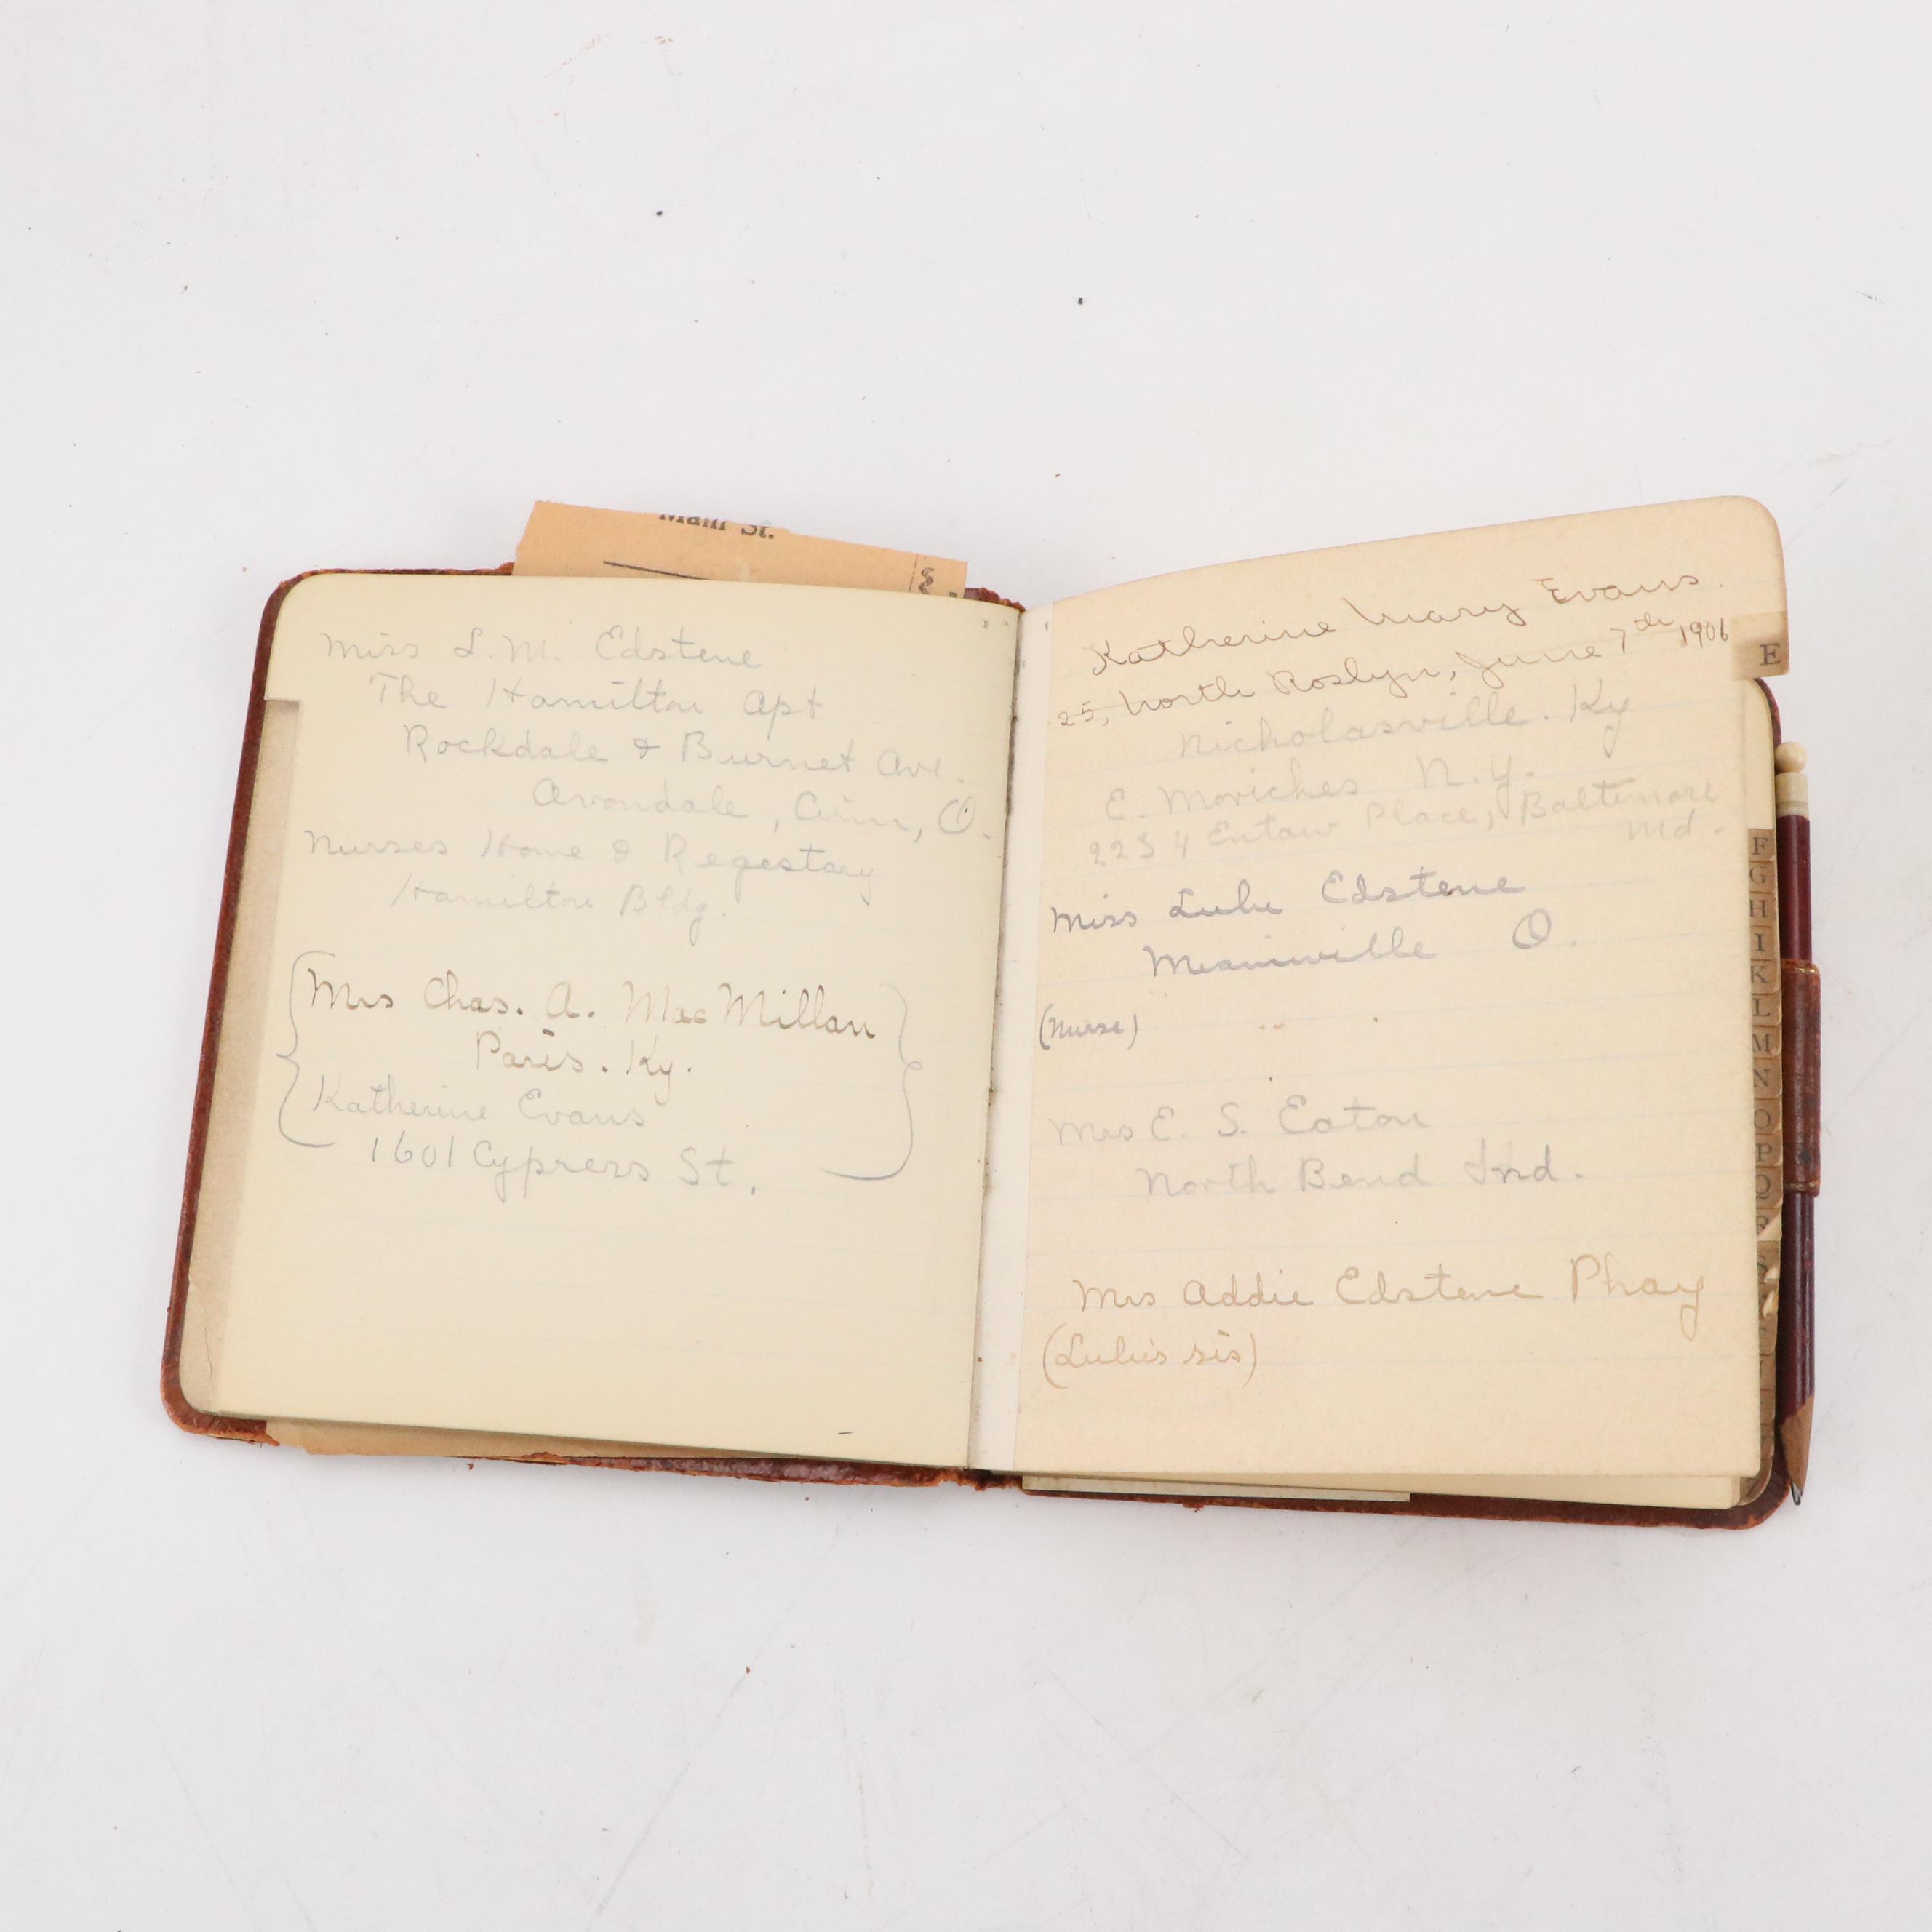 Main St.
Miss L. M. Edstene
The Hamilton Apt
Rockdale & Burnet Ave.
Avondale, Cinn, O.
Nurses Home & Regestory
Hamilton Bldg.
Mrs Chas. A. MacMillan
Paris. Ky.
Katherine Evans
1601 Cypress St.
Katherine Mary Evans.
25, North Roslyn, June 7th 1906
Nicholasville. Ky
E. Moriches N.Y.
2234 Eutaw Place, Baltimore
Md.
Miss Lulu Edstene
Miamiville O.
(Nurse)
Mrs E. S. Eaton
North Bend Ind.
Mrs Addie Edstene Phay
(Lulu's sis)
E
F
G
H
I
K
L
M
N
O
P
Q
R